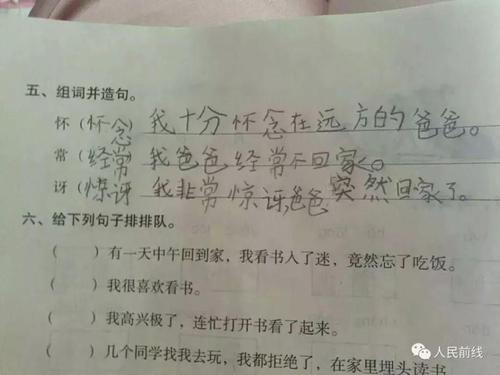 五、组词并造句。
怀（怀念）我十分怀念在远方的爸爸。
常（经常）我爸爸经常不回家。
讶（惊讶）我非常惊讶,爸爸突然回家了。
六、给下列句子排排队。
（  ）有一天中午回到家，我看书入了迷，竟然忘了吃饭。
（  ）我很喜欢看书。
（  ）我高兴极了，连忙打开书看了起来。
（  ）几个同学找我去玩，我都拒绝了，在家里埋头读书
人民前线